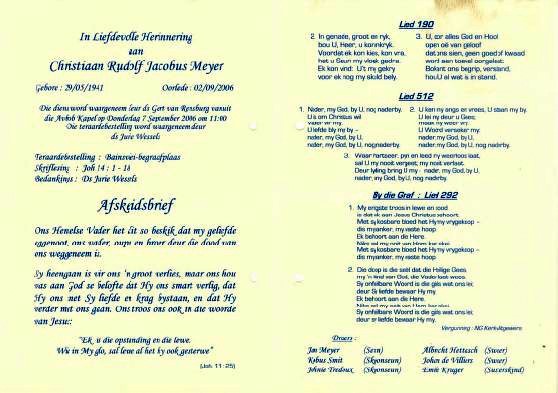 In Liefdevolle Herinnering
aan
Christiaan Rudolf Jacobus Meyer
Gebore : 29/05/1941 Oorlede : 02/09/2006
Die diens word waargeneem deur ds Gert van Rensburg vanuit
die Avbob Kapel op Donderdag 7 September 2006 om 11:00
Die teraardebestelling word waargeneem deur
ds Jurie Wessels
Teraardebestelling : Bainsvlei-begraafplaas
Skriflesing : Joh 14 : 1 - 14
Bedankings : Ds Jurie Wessels
Afskeidsbrief
Ons Hemelse Vader het dit so beskik dat my geliefde
eggenoot, ons vader, oupa en broer deur die dood van
ons weggeneem is.
Sy heengaan is vir ons 'n groot verlies, maar ons hou
vas aan God se belofte dat Hy ons smart verlig, dat
Hy ons met Sy liefde en krag bystaan, en dat Hy
verder met ons gaan. Ons troos ons ook in die woorde
van Jesus:
"Ek is die opstanding en die lewe.
Wie in My glo, sal lewe al het hy ook gesterwe"
(Joh 11:25)
Lied 190
2. In genade, groot en ryk,
bou U, Heer, u koninkryk.
Voordat ek kon kies, kon vra,
het u Seun my vloek gedra.
Ek kon vind: U't my gekry
voor ek nog my skuld bely.
3. U, oor alles God en Hoof
open oë van geloof
dat ons sien, geen goed of kwaad
word aan toeval oorgelaat:
Bokant ons begrip, verstand,
hou U al wat is in stand.
Lied 512
1. Nader, my God, by U, nog naderby.
U is om Christus wil
vader vir my.
U liefde bly my by –
nader, my God, by U,
nader, my God, by U, nog naderby.
2. U ken my angs en vrees, U staan my by.
U lei my deur u Gees;
maak my weer vry.
U Woord verseker my:
nader, my God, by U,
nader, my God, by U, nog naderby.
3. Waar hartseer, pyn en leed my weerloos laat,
sal U my nooit vergeet, my nooit verlaat.
Deur lyding bring U my - nader, my God, by U,
nader, my God, by U, nog naderby.
By die Graf : Lied 292
1. My enigste troos in lewe en dood
is dat ek aan Jesus Christus behoort.
Met sy kosbare bloed het Hy my vrygekoop -
dis my anker, my vaste hoop
Ek behoort aan die Here.
Niks sal my ooit van Hom kan skei.
Met sy kosbare bloed het Hy my vrygekoop -
dis my anker, my vaste hoop
2. Die doop is die seël dat die Heilige Gees
my 'n kind van God, die Vader laat wees.
Sy onfeilbare Woord is die gids wat ons lei;
deur Sy liefde bewaar Hy my.
Ek behoort aan die Here.
Niks sal my ooit van Hom kan skei.
Sy onfeilbare Woord is die gids wat ons lei;
deur Sy liefde bewaar Hy my.
Vergunning : NG Kerkuitgewers
Draers :
Jan Meyer (Seun) Albrecht Hettasch (Swaer)
Kobus Smit (Skoonseun) Johan de Villiers (Swaer)
Johnie Tredoux (Skoonseun) Emile Kruger (Susterskind)